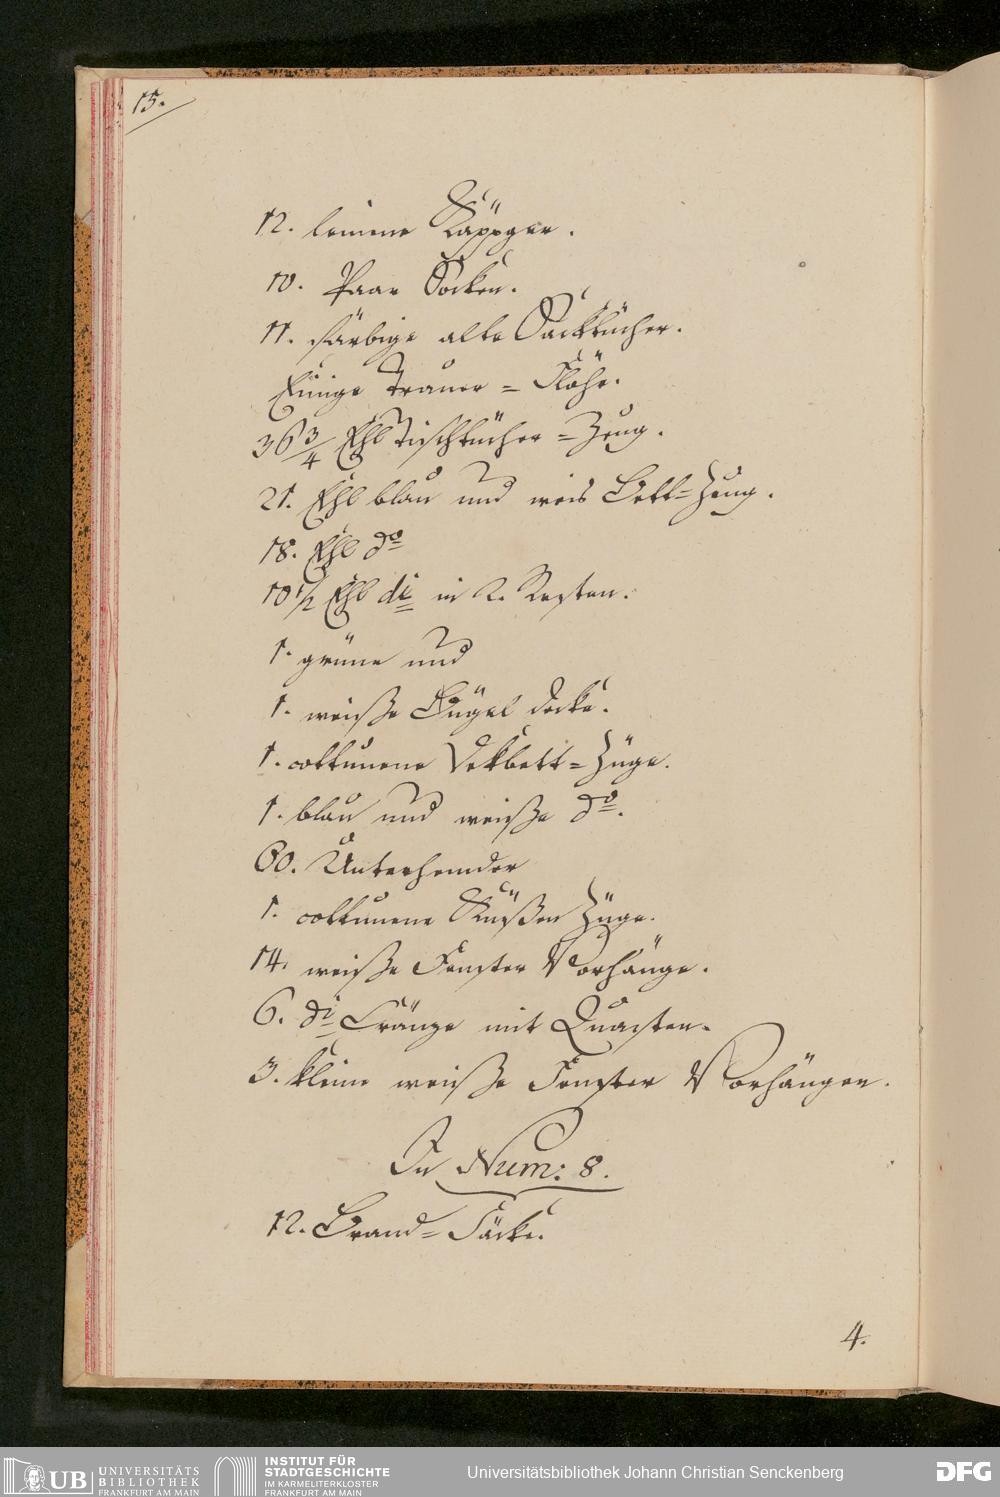 15.
12. leinene Käppger.
10. Paar Socken.
11. färbige alte Sacktücher.
Einige Trauer = Flöhr.
36 3/4 Ehl Tischtücher = Zeug.
21. Ehl blau und weis Bett = Zeug.
18. Ehl do
10 1/2 Ehl di in 2. Resten.
1. grüne und
1. weiße Bügel decke.
1. cottunene Dekbett = Züge.
1. blau und weiße do.
60. Unterhemder
1. cottunene Küßen Züge.
14. weiße Fenster Vorhänge.
6. di Cränze mit Quasten.
3. kleine weiße Fenster Vorhängen.
In Num: 8.
12. Brand = Säcke.
4.
UB UNIVERSITÄTS
BIBLIOTHEK
FRANKFURT AM MAIN
INSTITUT FÜR
STADTGESCHICHTE
IM KARMELITERKLOSTER
FRANKFURT AM MAIN
Universitätsbibliothek Johann Christian Senckenberg
DFG